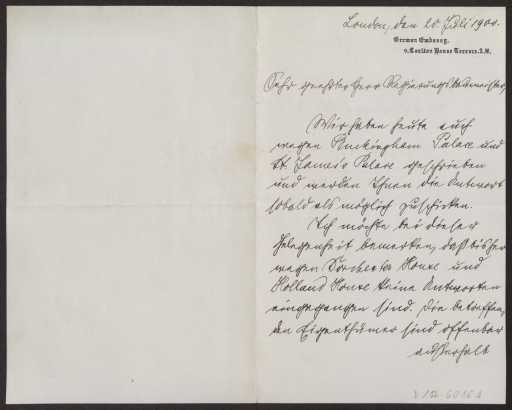 London, den 20. Juli 1901.
German Embassy.
9. Carlton House Terrace. S.W.
Sehr geehrter Herr Regierungsbaumeister,
Wir haben heute auch
wegen Buckingham Palace und
St. James's Palace geschrieben
und werden Ihnen die Antwort
sobald als möglich zuschicken.
Ich möchte bei dieser
Gelegenheit bemerken, daß bisher
wegen Dorchester House und
Holland House keine Antworten
eingegangen sind. Die betreffen-
den Eigenthümer sind offenbar
außerhalb